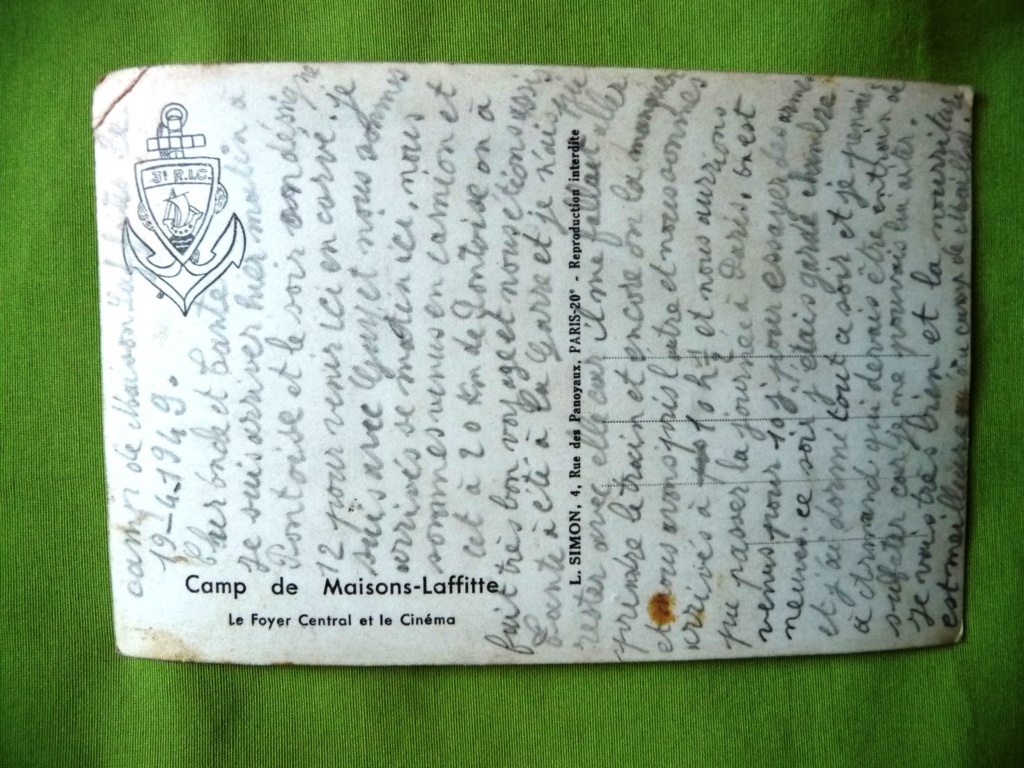 camp de Maison Laffitte le
19-4-1949.
3e R.I.C.
Cher onde et Tante
Je suis arriver hier matin à
Pontoise et le soir on désigne
12 pour venir ici en corvé. je
suis avec Guy et nous sommes
arrivés se matin ici, nous
sommes venus en camion et
cet à 20 Km de Pontoise on à
fait très bon voyage et nous étions assis
Tante à été à la Garre et je n'ais pu
rester avec elle car il me fallait aller
prendre le train et encore on la manquer
et nous avons pris l'autre et nous sommes
arrivés à 10 h ½ et nous aurrions
pu passer la journée à Paris. on est
venus pour 10 j pour essayer des armes
neuves ce soir j'étais garde chambre
et j'ai dormi tout ce soir et je pensais
à Armand qui devais être entrain de
sulfater car je ne pouvais lui aider
je vais très bien et la nourriture
est meilleure au camp de
Camp de Maisons-Laffitte
Le Foyer Central et le Cinéma
L. SIMON, 4, Rue des Panoyaux, PARIS-20e - Reproduction interdite